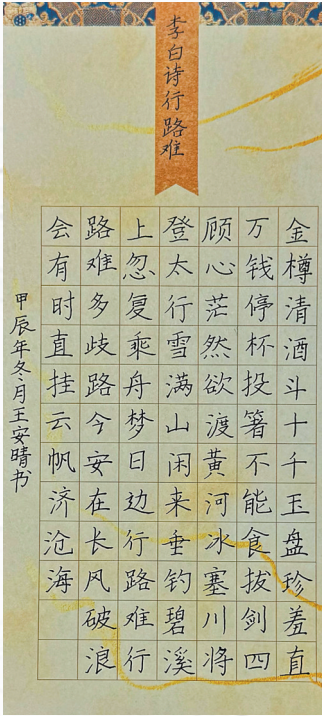 李白诗行路难
金樽清酒斗十千玉盘珍羞直
万钱停杯投箸不能食拔剑四
顾心茫然欲渡黄河冰塞川将
登太行雪满山闲来垂钓碧溪
上忽复乘舟梦日边行路难行
路难多歧路今安在长风破浪
会有时直挂云帆济沧海
甲辰年冬月王安晴书